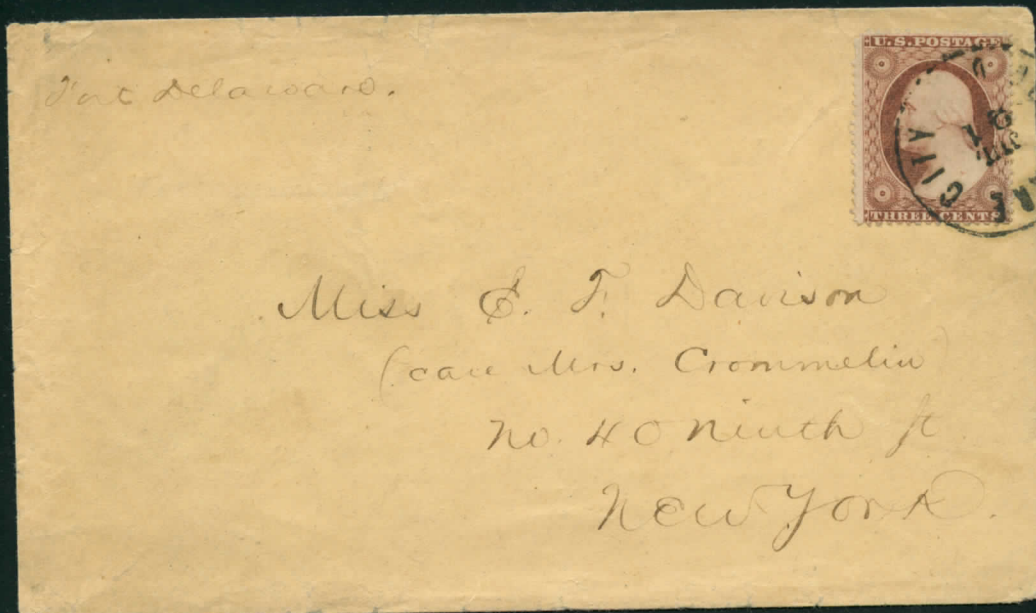 Fort Delaware.
U.S. POSTAGE
THREE CENTS
CITY
Miss E. F. Davison
(care Mrs. Crommelin)
No. 40 Ninth st.
New York.